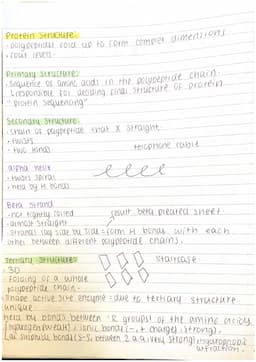 Protein Structure:
• polypeptides fold up to form complex dimensions
• four levels
Primary Structure:
• sequence of amino acids in the polypeptide chain.
responsible for deciding final structure of protein
"protein sequencing"
Secondary Structure:
• chain of polypeptide that X straight
• twists
• two kinds telephone cable
alpha helix
• twists spiral
• held by H bonds
Beta strand
• not tightly coiled result beta pleated sheet
• almost straight
• strands lay side by side = form H bonds with each
other between different polypeptide chains.
Tertiary Structure: staircase
• 3D
folding of a whole
polypeptide chain.
• shape active site enzyme = due to tertiary structure
unique
held by bonds between R groups of the amino acids
hydrogen (weak), ionic bonds (-,+ charges) (strong),
disulphide bonds (S-S, between 2 (very strong) hydrophobic
attraction.